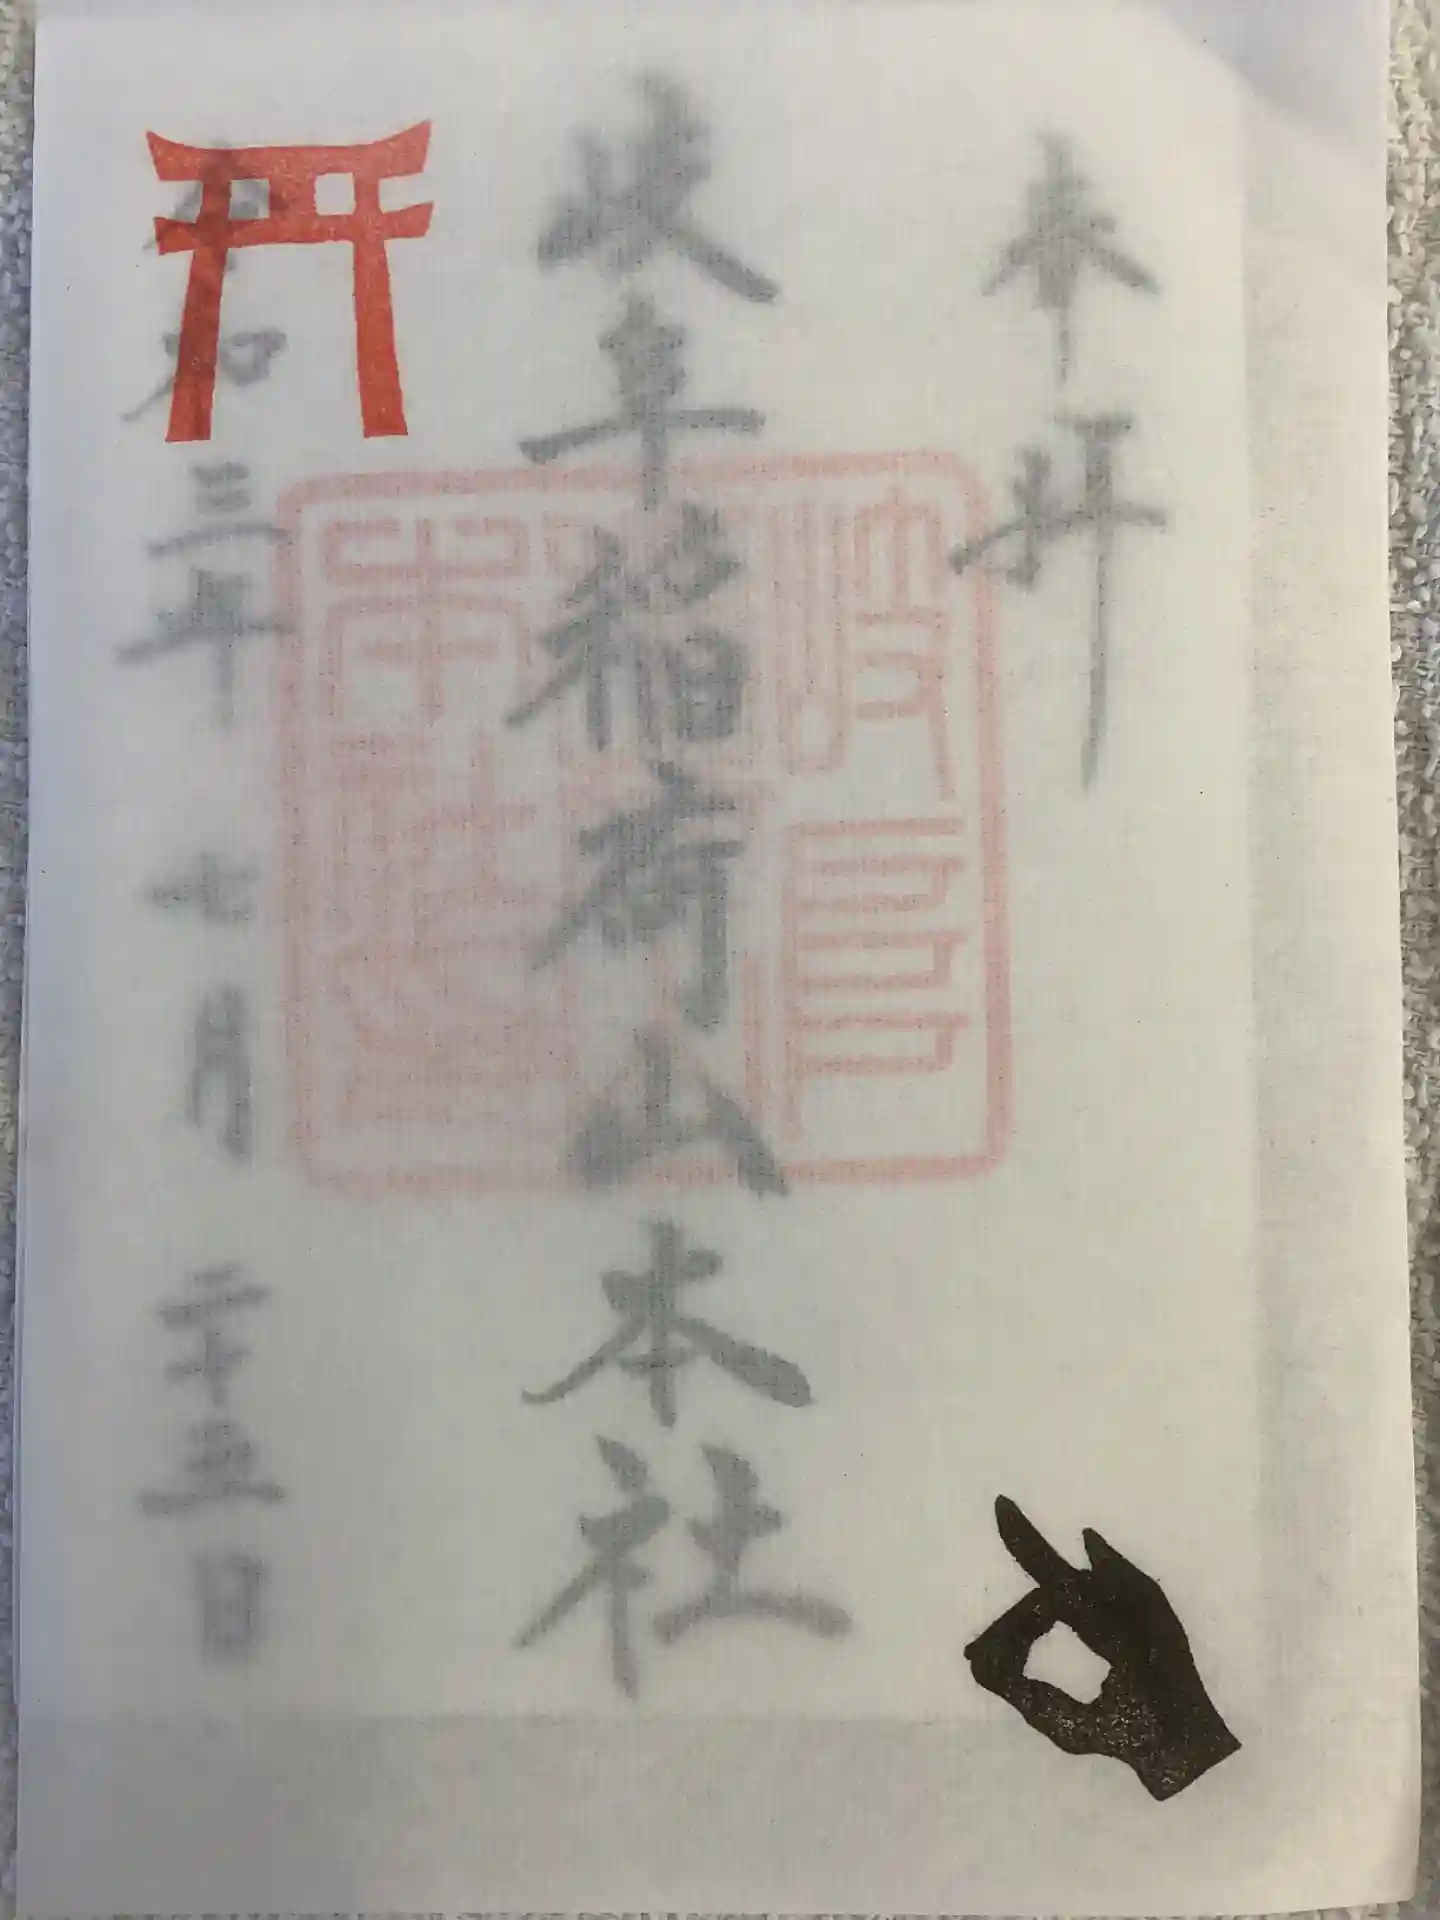 奉拝
岐阜稲荷山本社
令和三年 七月 二十五日